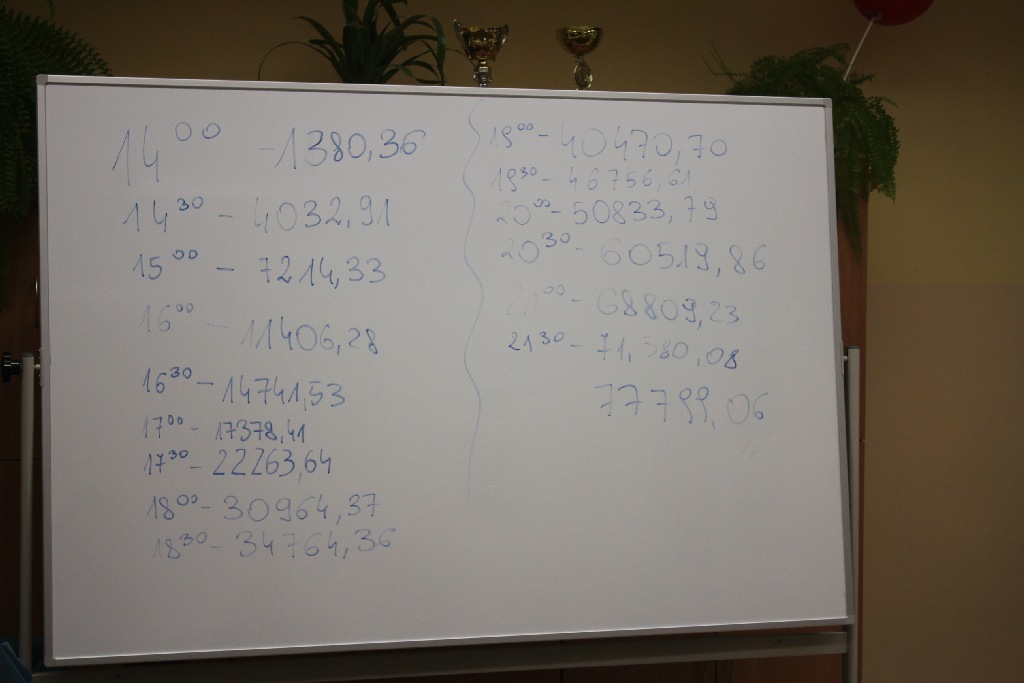 14⁰⁰ - 1380,36
14³⁰ - 4032,91
15⁰⁰ - 7214,33
16⁰⁰ - 11406,28
16³⁰ - 14741,53
17⁰⁰ - 17378,41
17³⁰ - 22263,64
18⁰⁰ - 30964,37
18³⁰ - 34764,36
19⁰⁰ - 40470,70
19³⁰ - 46756,61
20⁰⁰ - 50833,79
20³⁰ - 60519,86
21⁰⁰ - 68809,23
21³⁰ - 71,580,08
77799,06